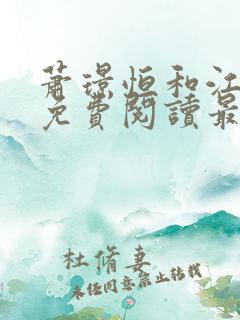 蕭璟恒和江
免費閱讀最
杜脩妻
未经同意禁止转载